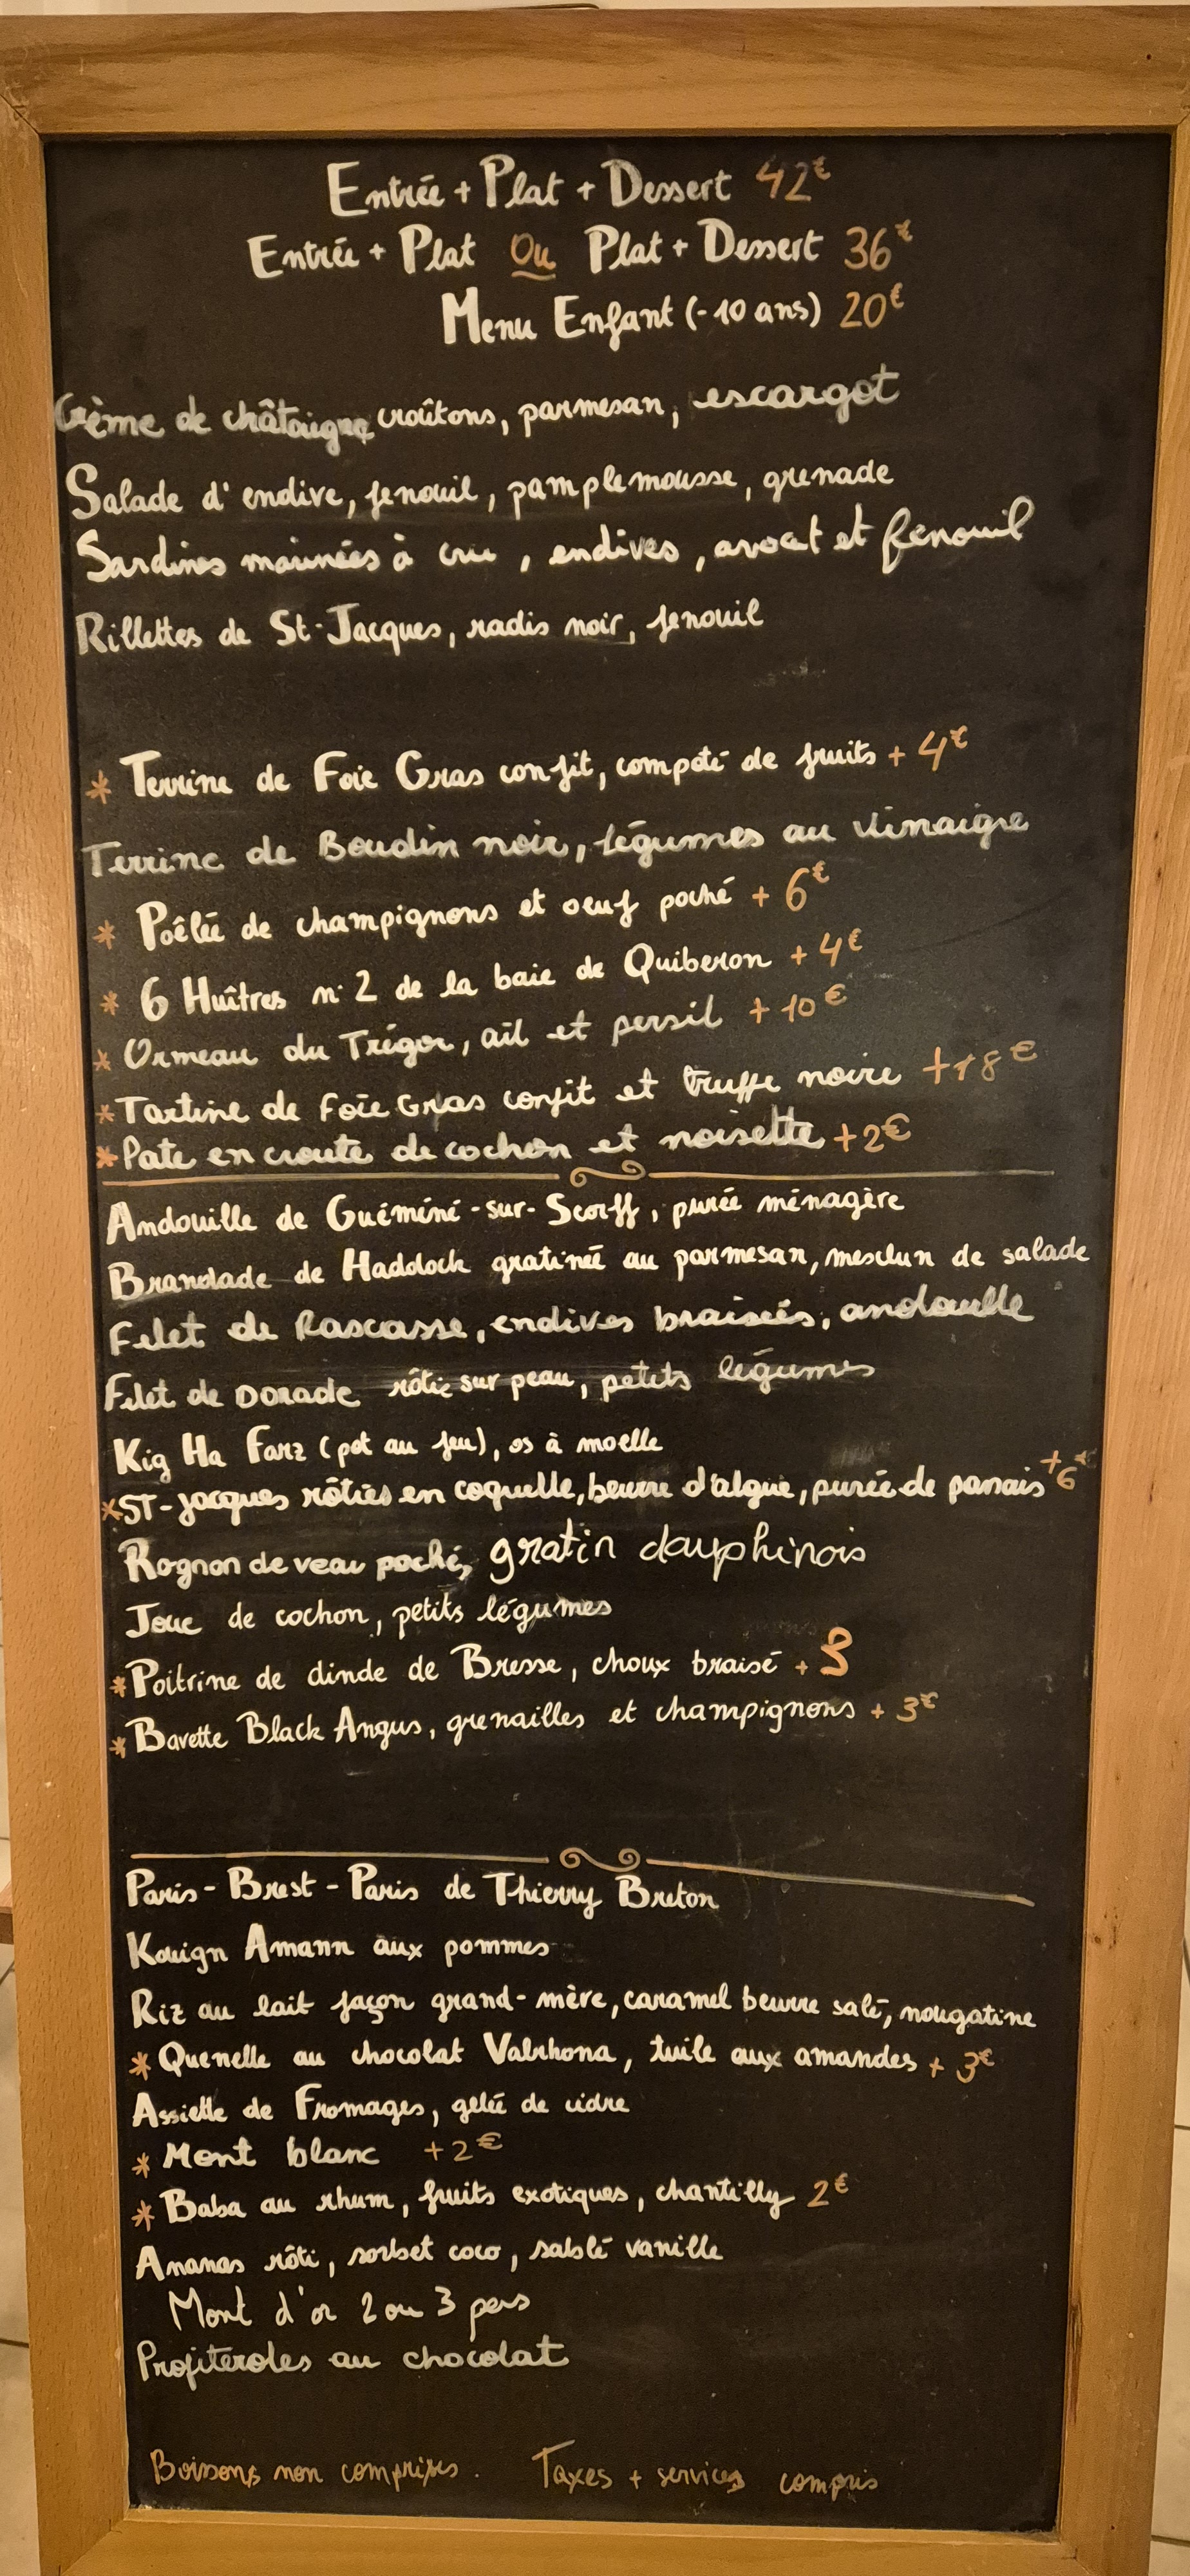 Entrée + Plat + Dessert 42€
Entrée + Plat Ou Plat + Dessert 36€
Menu Enfant (-10 ans) 20€
Crème de châtaigne croûtons, parmesan, escargot
Salade d'endive, fenouil, pamplemousse, grenade
Sardines marinées à cru, endives, avocat et fenouil
Rillettes de St-Jacques, radis noir, fenouil
* Terrine de Foie Gras confit, compoté de fruits + 4€
Terrine de Boudin noir, légumes au vinaigre
* Poêlée de champignons et oeuf poché + 6€
* 6 Huîtres n°2 de la baie de Quiberon + 4€
* Ormeau du Trégor, ail et persil + 10€
* Tartine de Foie Gras confit et truffe noire +18€
* Pate en croute de cochon et noisette +2€
Andouille de Guémené-sur-Scorff, purée ménagère
Brandade de Haddock gratinée au parmesan, mesclun de salade
Filet de Rascasse, endives braisées, andouille
Filet de Dorade rôtie sur peau, petits légumes
Kig Ha Farz (pot au feu), os à moelle
* ST-Jacques rôties en coquille, beurre d'algue, purée de panais +6€
Rognon de veau poché, gratin dauphinois
Joue de cochon, petits légumes
* Poitrine de dinde de Bresse, choux braisé +
* Bavette Black Angus, grenailles et champignons + 3€
Paris-Brest-Paris de Thierry Breton
Kouign Amann aux pommes
Riz au lait façon grand-mère, caramel beurre salé, nougatine
* Quenelle au chocolat Valrhona, tuile aux amandes + 3€
Assiette de Fromages, gelée de cidre
* Mont blanc +2€
* Baba au rhum, fruits exotiques, chantilly 2€
Ananas rôti, sorbet coco, sablé vanille
Mont d'or 2 ou 3 pers
Profiteroles au chocolat
Boissons non comprises. Taxes + services compris